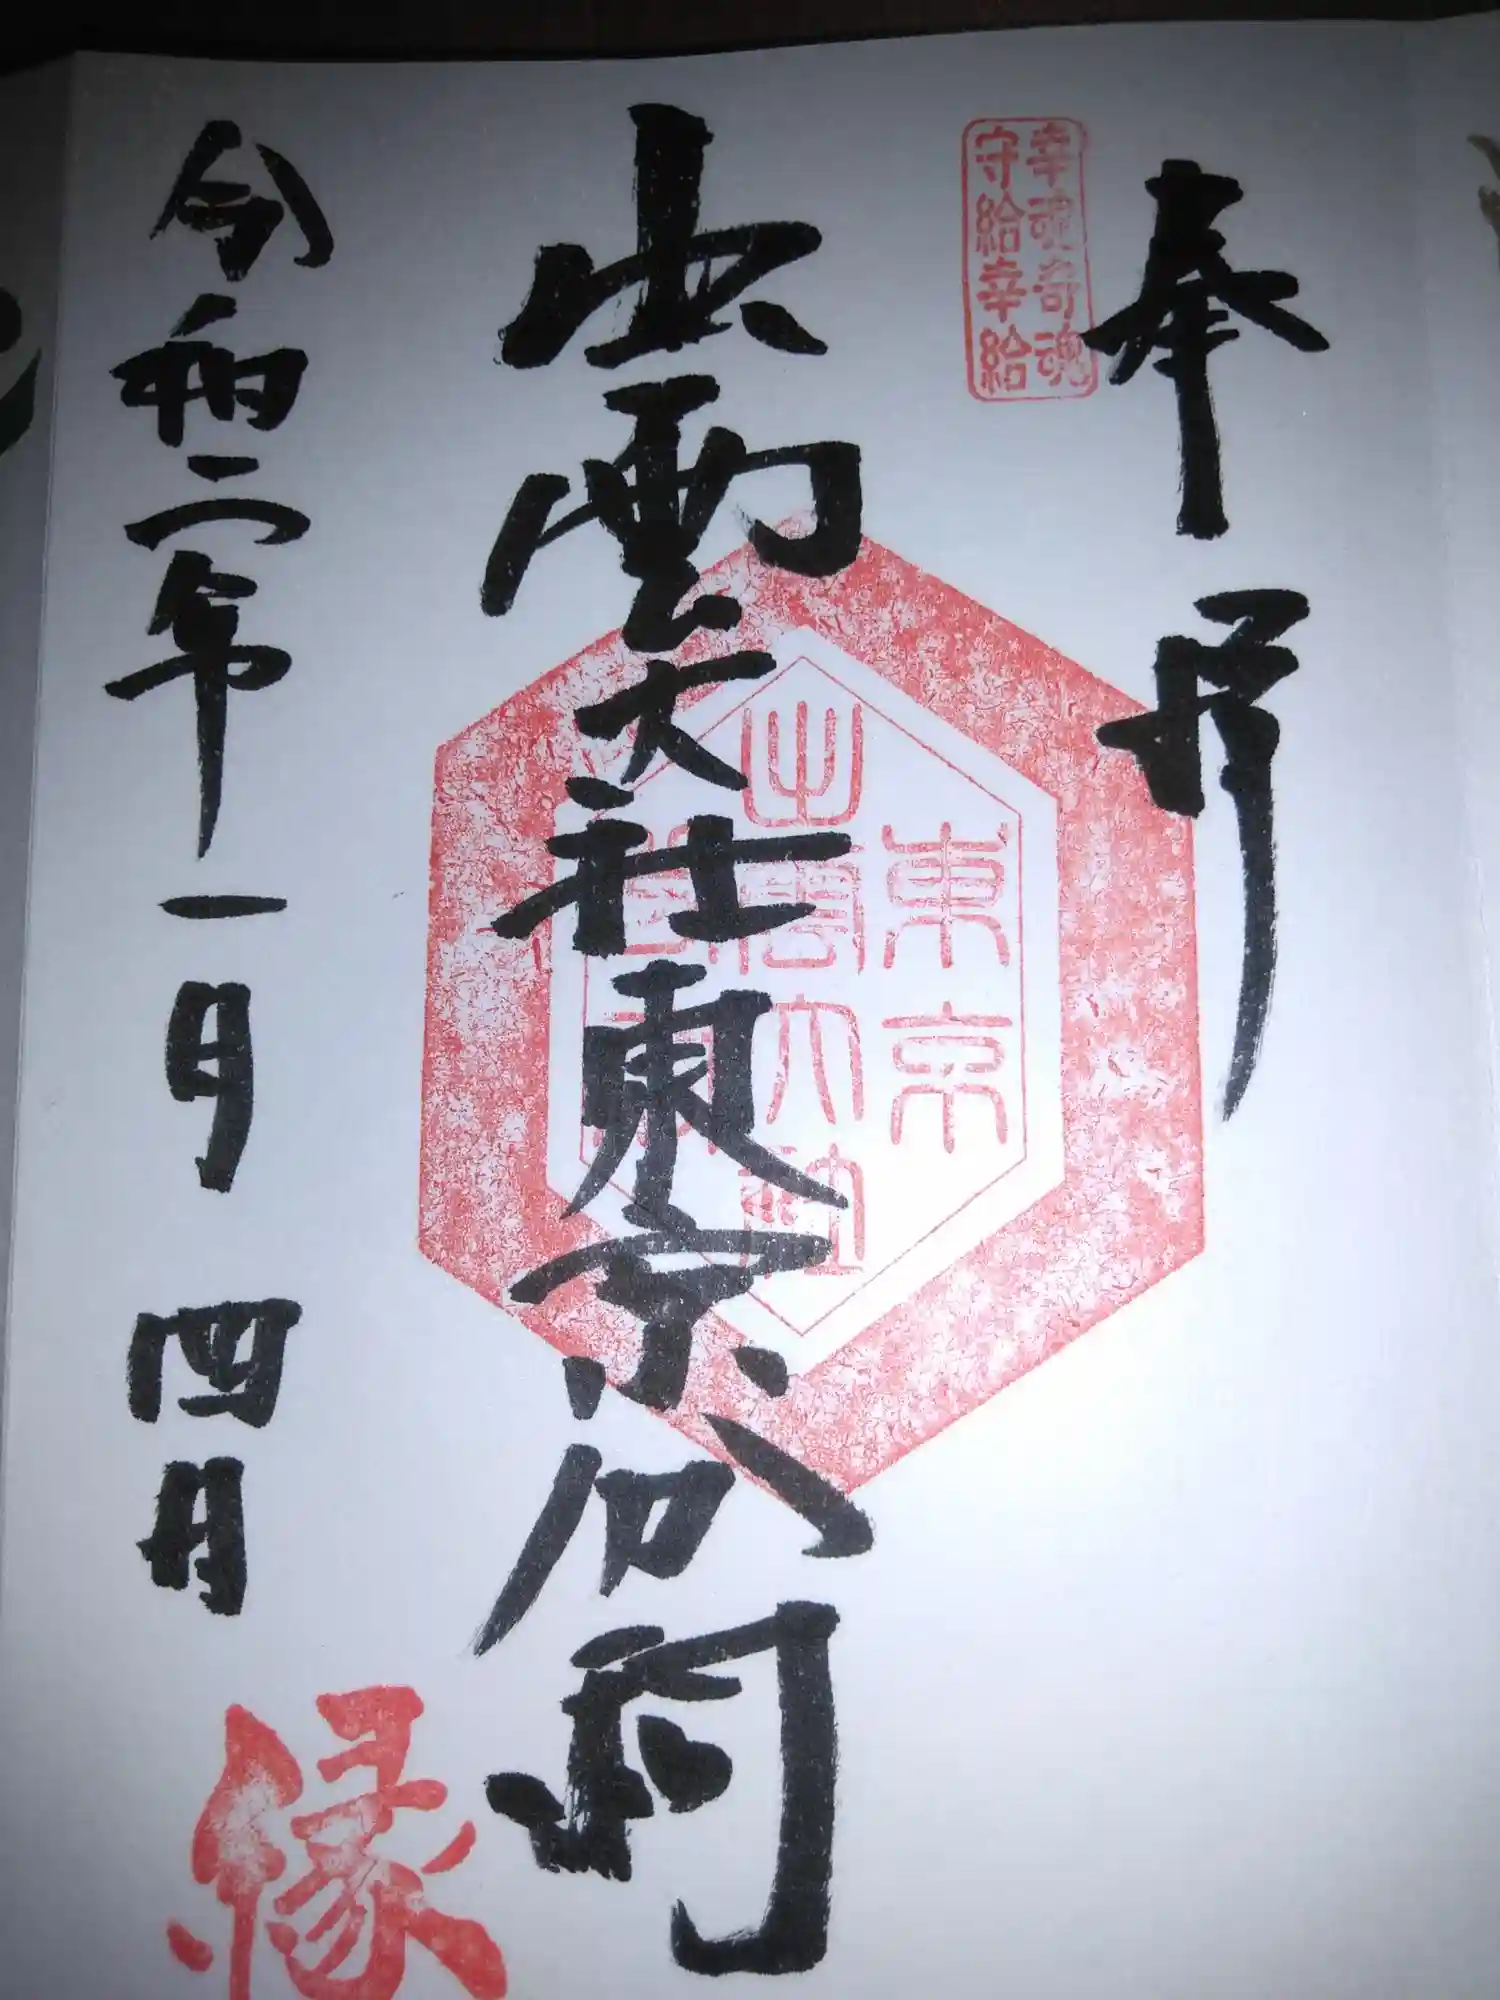 奉拝
幸魂奇魂
守給幸給
出雲大社東京分祠
東京
出雲大社
分祠
令和二年一月四日
縁